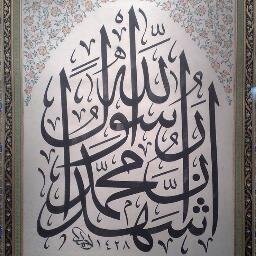 أشهد أن محمدًا رسول الله
١٤٢٨